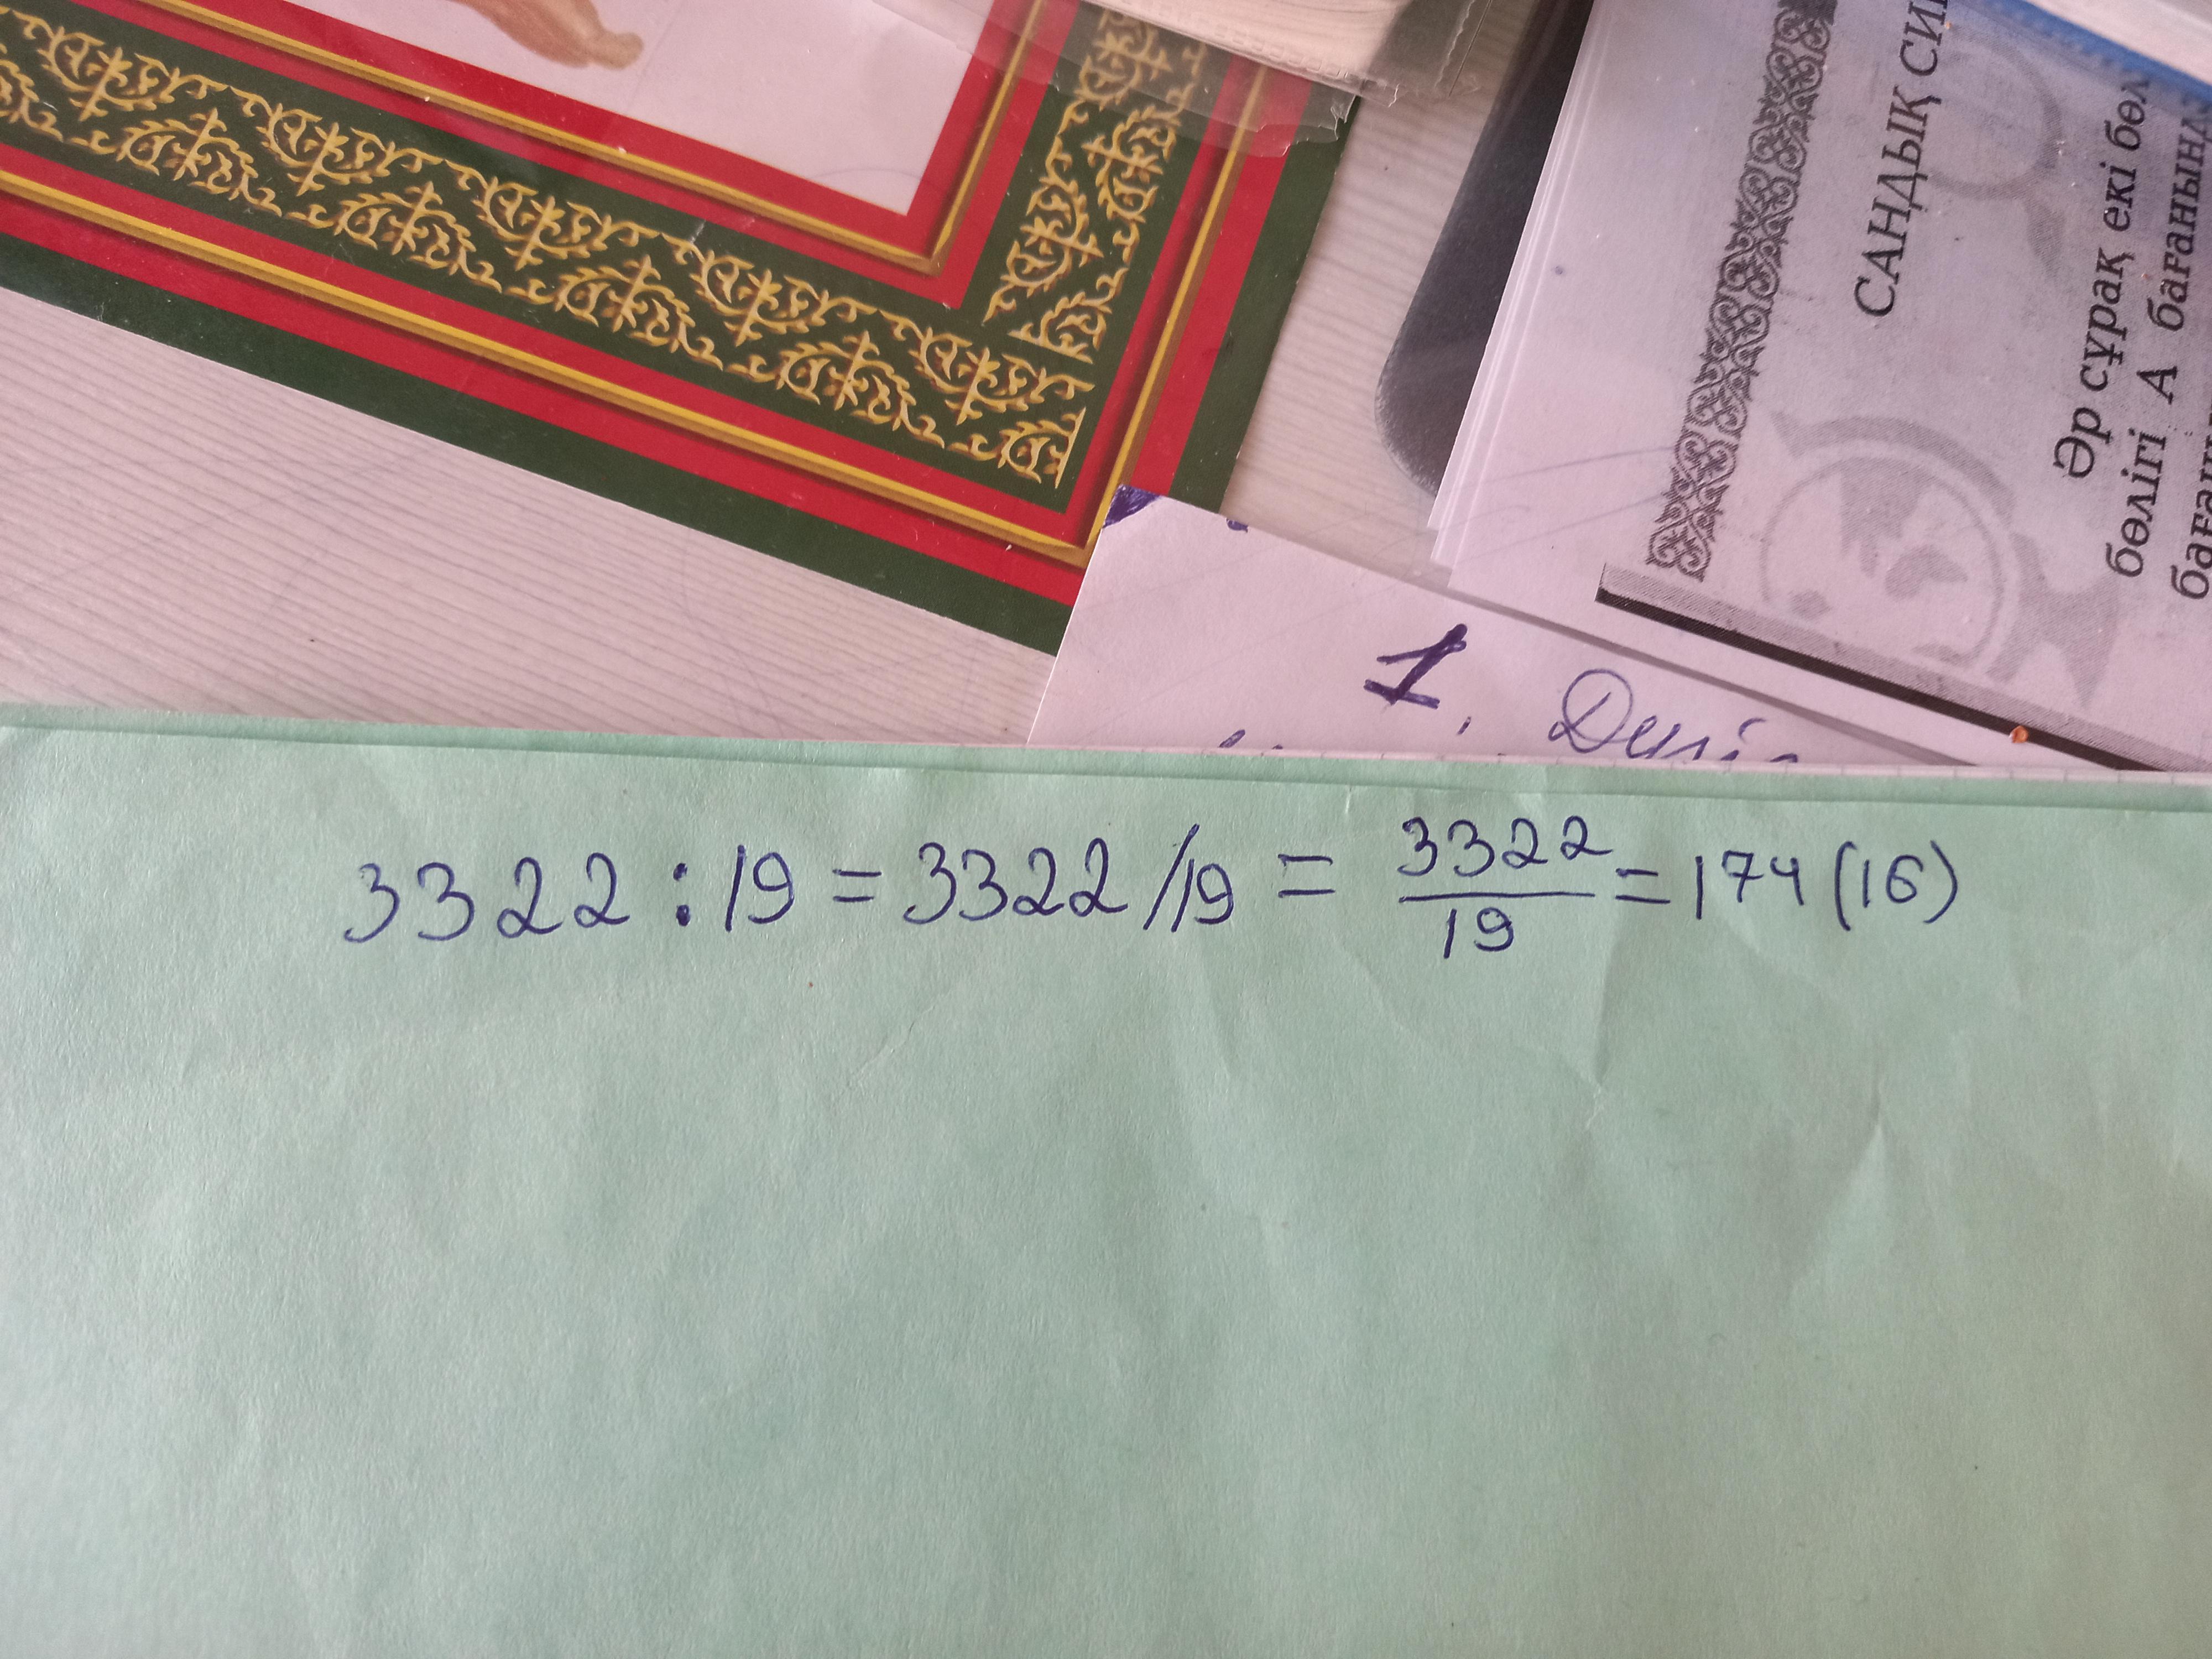 САНДЫҚ
Әр сұрақ екі
бөлігі А бағанының
1.
3322 : 19 = 3322 / 19 = 3322/19 = 174 (16)